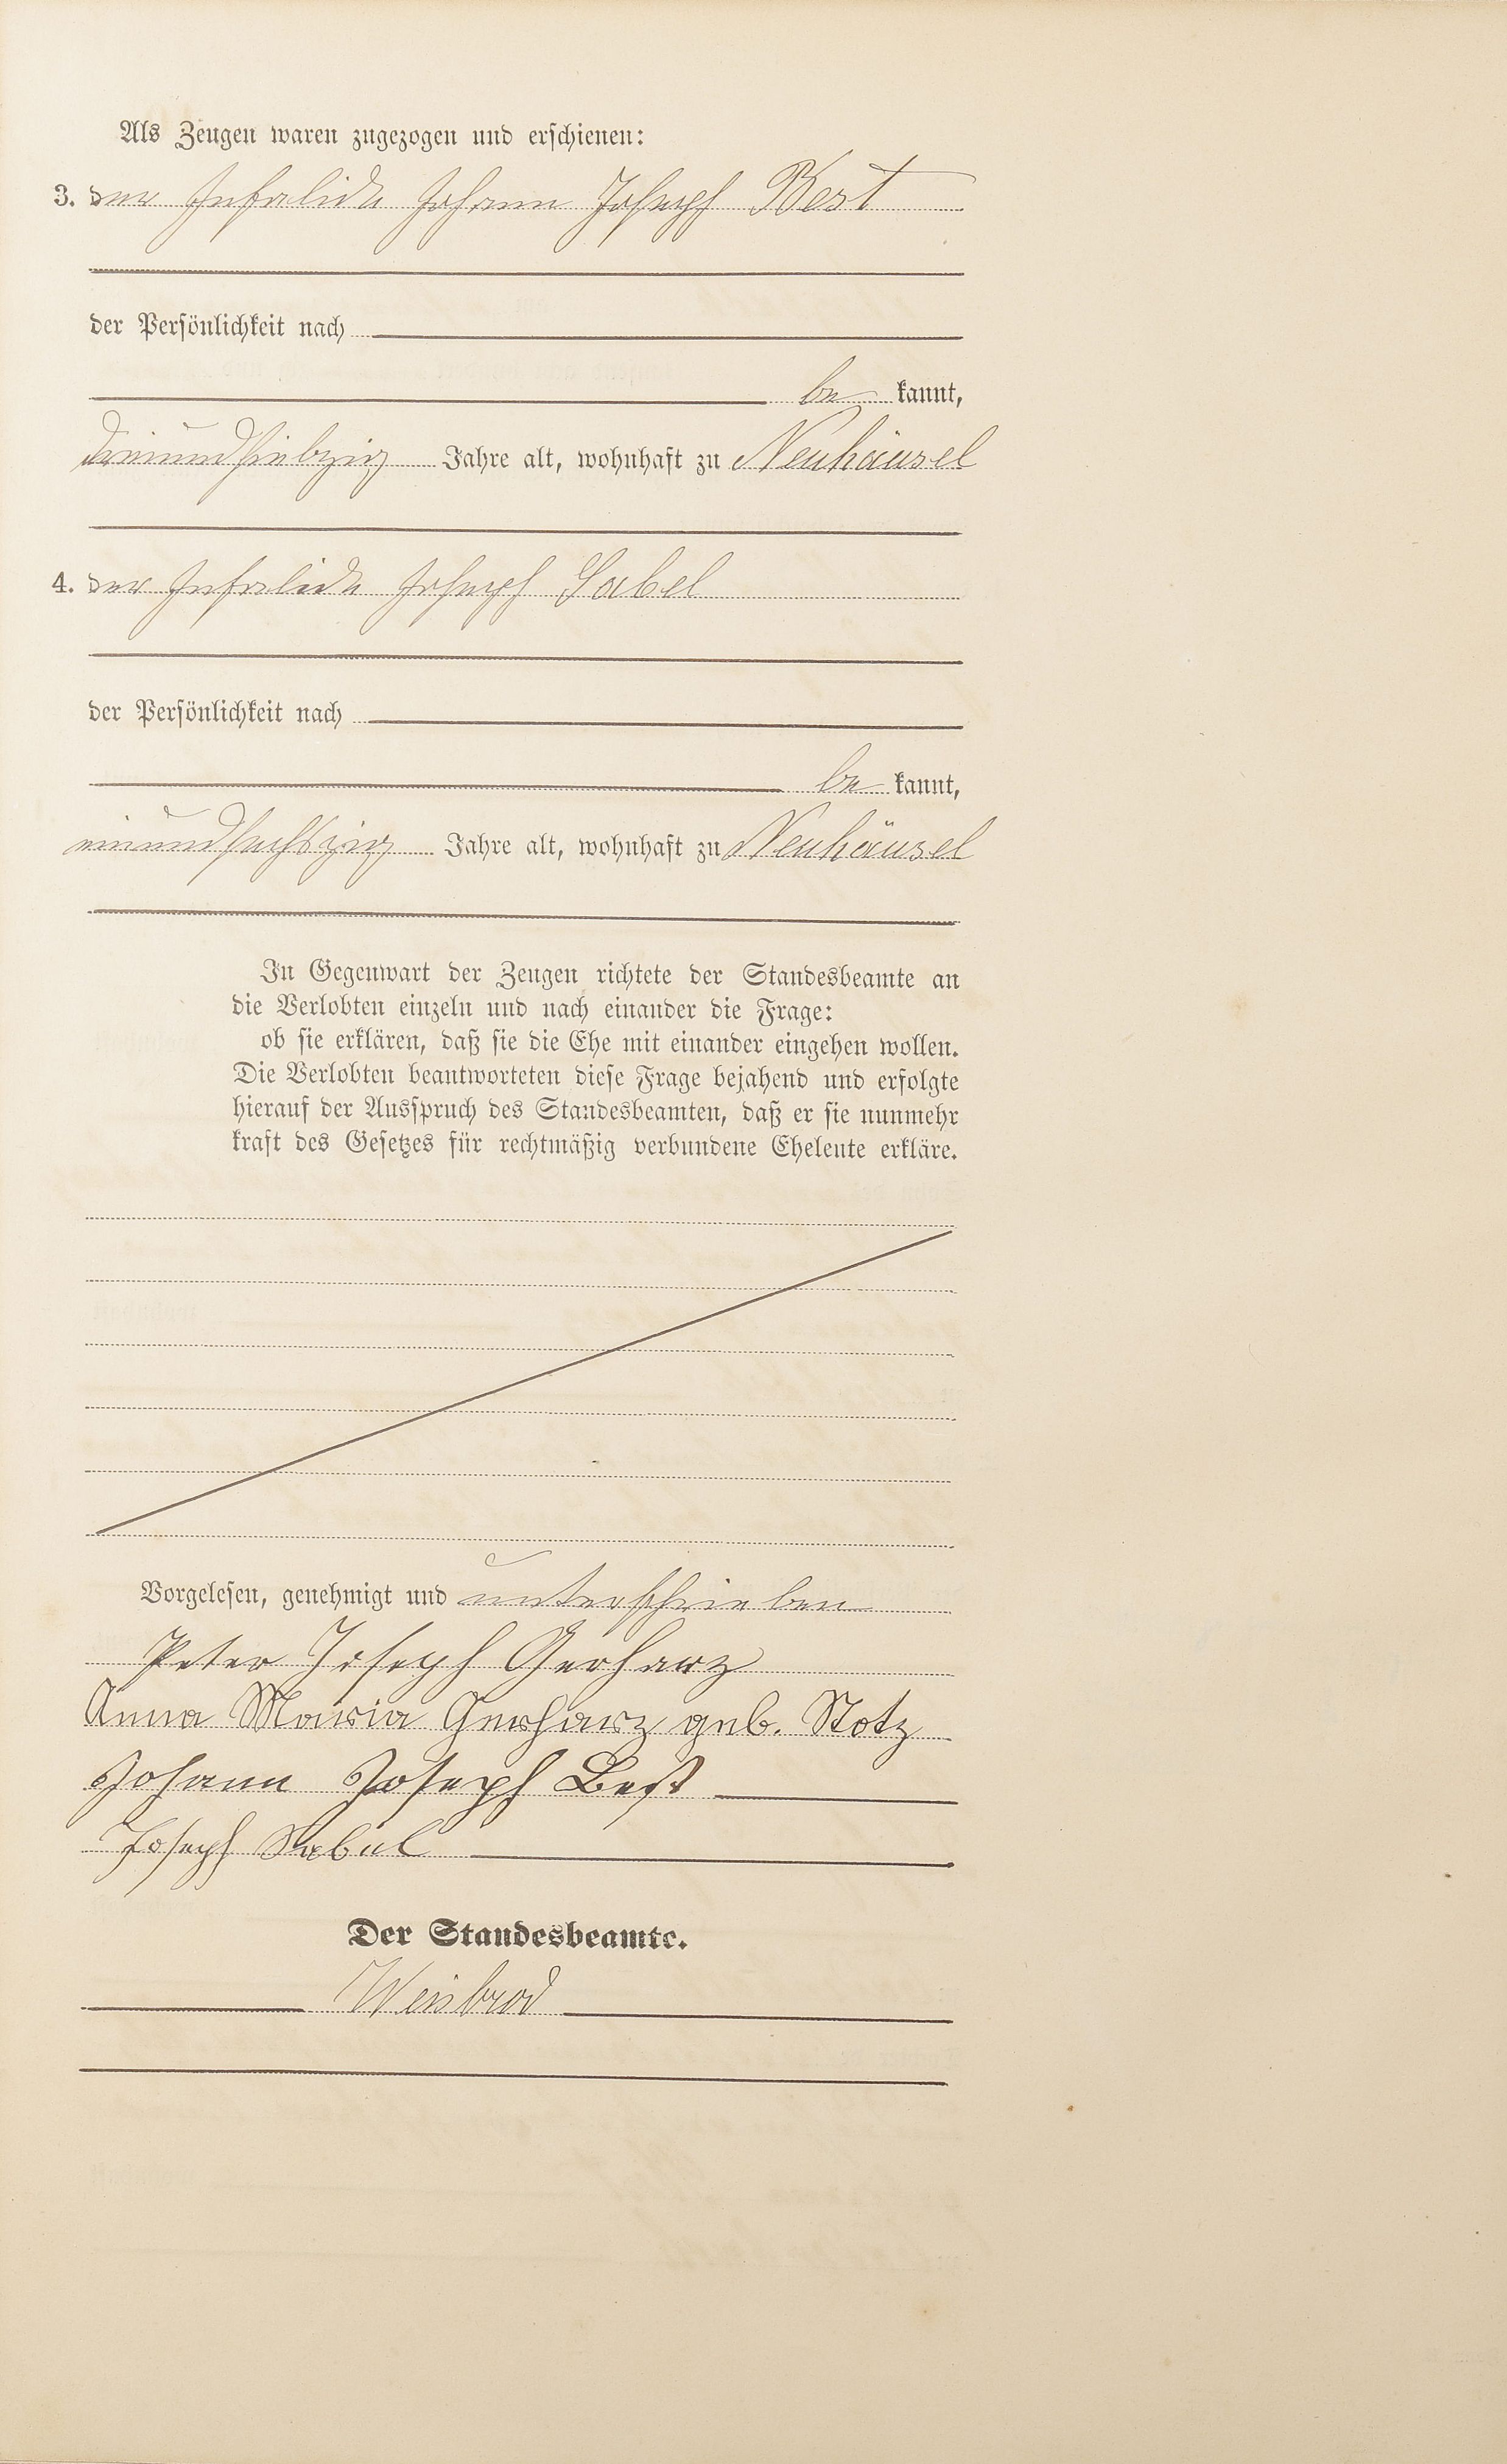 Als Zeugen waren zugezogen und erschienen:
3. der Invalide Johann Joseph Best
der Persönlichkeit nach
be kannt,
dreiundsiebzig Jahre alt, wohnhaft zu Neuhäusel
4. der Invalide Joseph Sabel
der Persönlichkeit nach
be kannt,
einundsechszig Jahre alt, wohnhaft zu Neuhäusel
In Gegenwart der Zeugen richtete der Standesbeamte an
die Verlobten einzeln und nach einander die Frage:
ob sie erklären, daß sie die Ehe mit einander eingehen wollen.
Die Verlobten beantworteten diese Frage bejahend und erfolgte
hierauf der Ausspruch des Standesbeamten, daß er sie nunmehr
kraft des Gesetzes für rechtmäßig verbundene Eheleute erkläre.
Vorgelesen, genehmigt und unterschrieben
Peter Joseph Gerharz
Anna Maria Gerharz geb. Stotz
Johann Joseph Best
Joseph Sabel
Der Standesbeamte.
Weisbrod